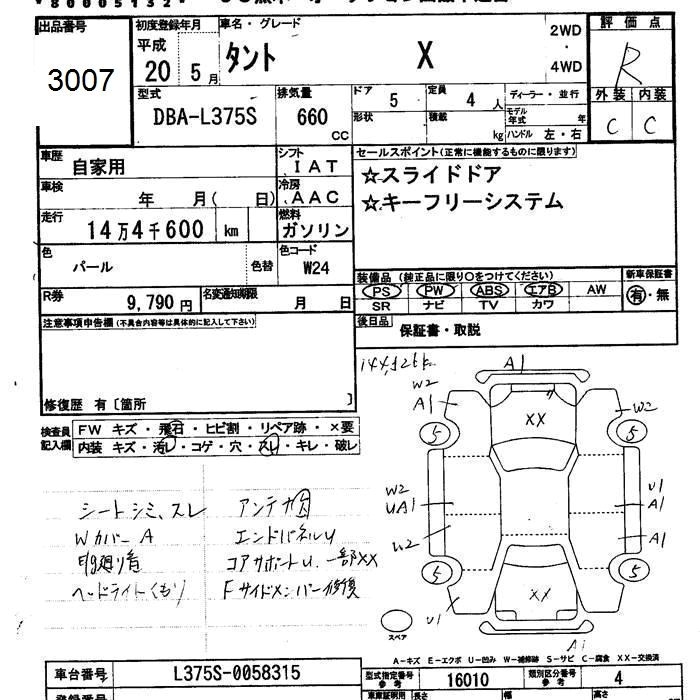 80005132
出品番号
3007
初度登録年月
平成
20 5月
車名・グレード
タント X
2WD
・
4WD
評価点
R
外装 内装
C C
型式
DBA-L375S
排気量
660
CC
ドア 5
定員 4 人
形状
積載 kg
ディーラー・並行
モデル年式 年
ハンドル 左・右
車歴
自家用
シフト
IAT
車検
年 月( 日)
冷房
AAC
走行
14万4千600 km
燃料
ガソリン
色
パール
色替
色コード
W24
R券
9,790円
名変通知期限
月 日
セールスポイント(正常に機能するものに限ります)
☆スライドドア
☆キーフリーシステム
装備品 (純正品に限り〇をつけてください)
PS PW ABS エアB AW
SR ナビ TV カワ
新車保証書
有・無
後日品
保証書・取説
注意事項申告欄(不具合内容等は具体的に記入して下さい)
修復歴 有〔箇所 〕
検査員
記入欄
FW キズ・飛石・ヒビ割・リペア跡・×要
内装 キズ・汚レ・コゲ・穴・スレ・キレ・破レ
シートシミ、スレ
Wカバー A
ヘッドライトくもり
アンテナ欠
エンドパネルU
コアサポートU、一部XX
Fサイドメンバー修復
144,126k
A1
W2
A1
W2
XX
5
5
W2
UA1
U1
A1
W2
A1
5
5
XX
U1
A1
スペア
A-キズ E-エクボ U-凹み W-補修跡 S-サビ C-腐食 XX-交換済
車台番号
L375S-0058315
型式指定番号
参考
16010
類別区分番号
参考
4
登録番号
車庫証明用
長さ
幅
高さ